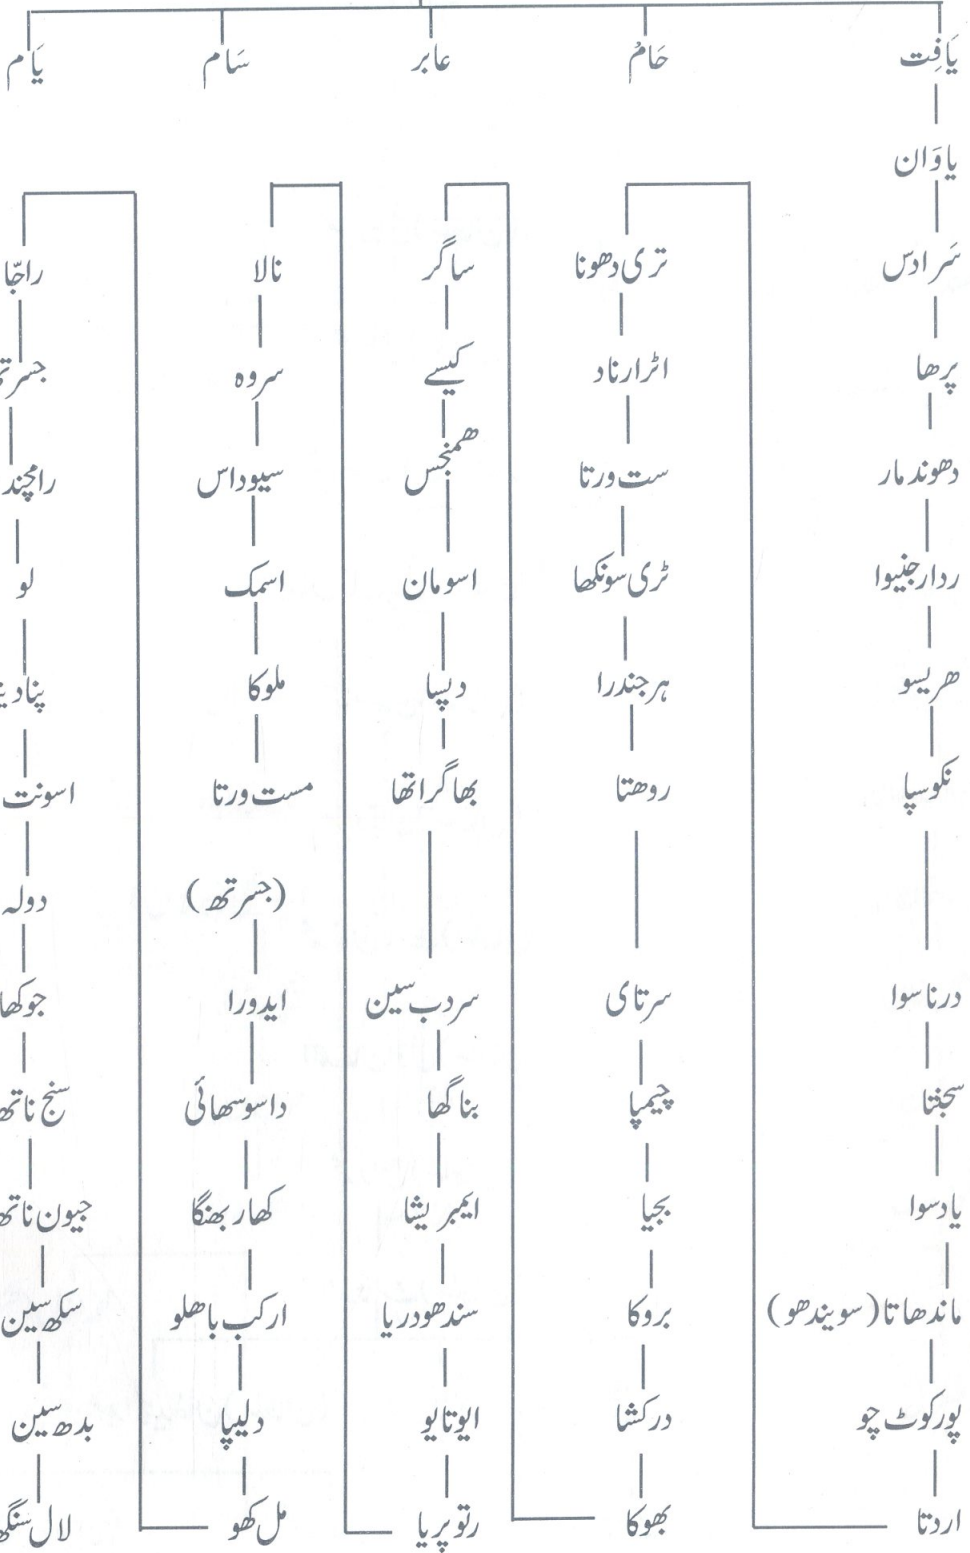 یَافِت
حَامْ
عابر
سَام
یَام
یاوَان
سَرادس
پرھا
دھوندمار
ردارجنیوا
ھریسو
نکوسپا
درناسوا
سجنتا
یادسوا
ماندھاتا (سویندھو)
پورکوٹ چو
اردتا
تری دھونا
اثرارناد
ست ورتا
ٹری سونکھا
ہرجندرا
روھتا
سرتای
چیمپا
بجیا
بروکا
درکشا
بھوکا
ساگر
کیسے
ھمنجس
اسومان
دپسا
بھاگراتھا
سردب سین
بناگھا
ایمبریشا
سندھودریا
ایوتایو
رتوپریا
نالا
سروہ
سیوداس
اسمک
ملوکا
مست ورتا
(جسرتھ)
ایدورا
داسوسھائی
کھاربھنگا
ارکب باھلو
دلیپا
مل کھو
راجّا
جسرتھ
رامچند
لو
اسونت
دولہ
جوکھا
سنج ناتھ
جیون ناتھ
سکھ سین
بدھ سین
لال سنگھ